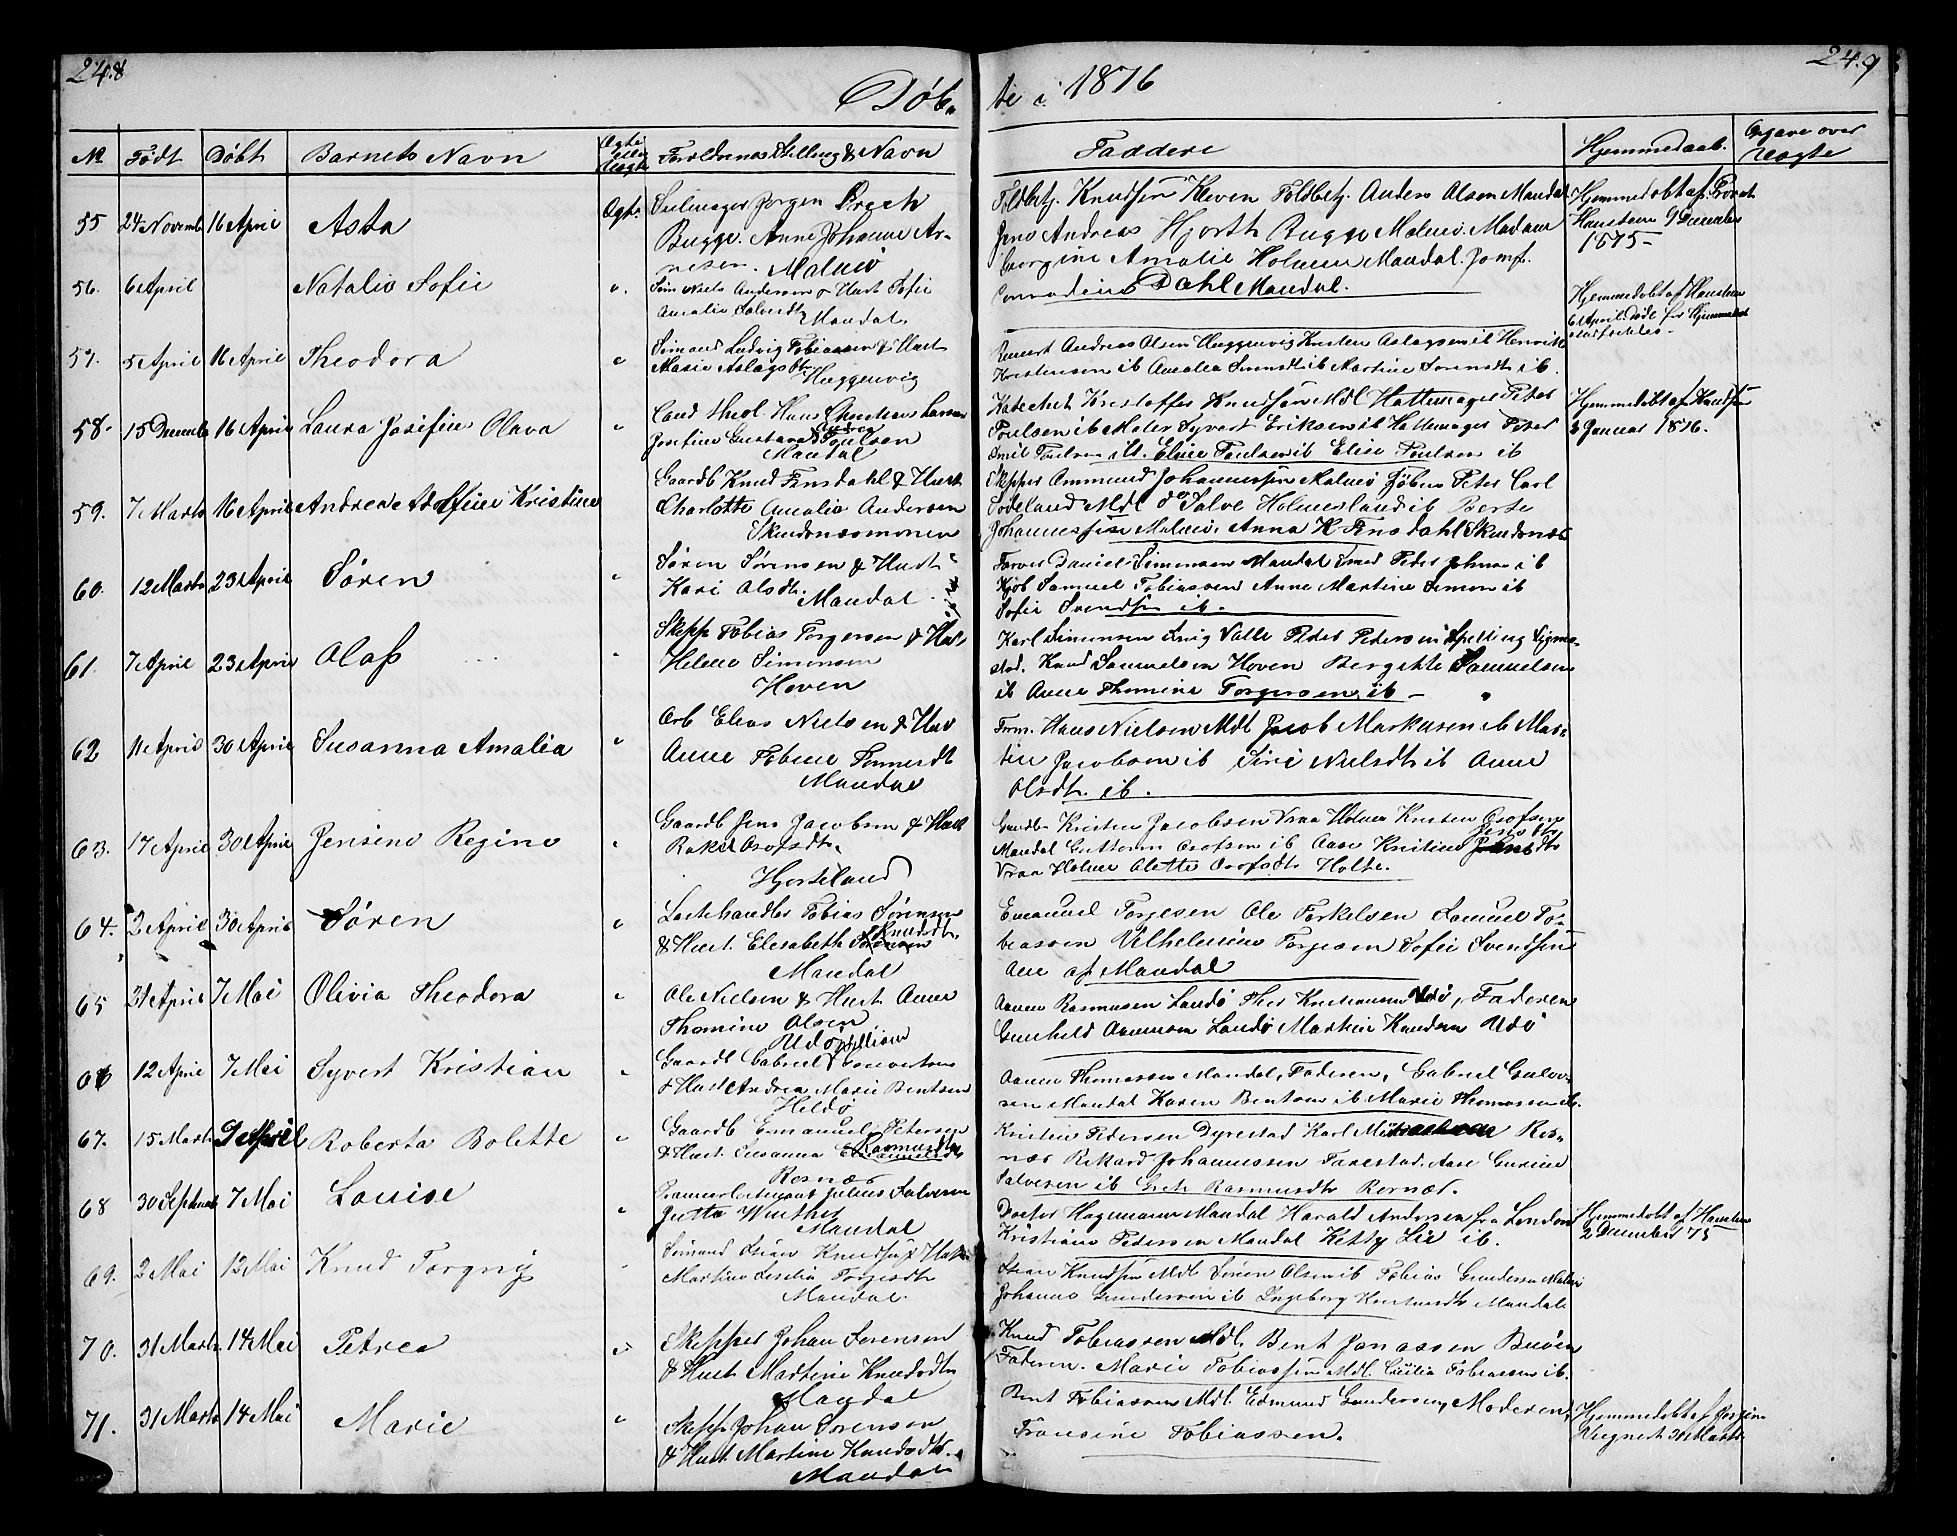 248
249
Døb-
te i 1876
No Født Døbt Barnets Navn Ægte eller Uægte Forældrenes Stilling & Navn Faddere Hjemmedaab. Opgave over Uægte
55 24 Novemb 16 April Asta Ægte Seilmager Jørgen Brech
Bugge. Anne Johanne Ar-
nesen. Malmø
Toldbetj. Knudsen Kleven Toldbetj. Anders Olsen Mandal
Jens Andreas Hjorth Bugge Malmø. Madam
Georgine Amalie Holmen Mandal. Jomf.
Conradine Dahl Mandal.
Hjemmedøbt af Provst
Hanstem 9 December
1875-
56. 6 April Natalie Sofie
Niels Andersen & Hust Sofie
Amalie Salvesdtr
Mandal.
Hjemmedøbt af Hansteen
6 April
57. 5 April 16 April Theodora
Simand Ludvig Tobiassen & Hust
Marie Aslagsdtr
Heggenvig
Andreas Olsen Heggenvig Kristen Aslagsen ib
Kristensen ib Amalia ib Martine ib.
58. 15 Decemb 16 April Laura Josefine Olava
Cand theol. Hans Larsen
Josefine Gustava Andrea Poulsen
Mandal
Katechet Kristoffer Knudsen Mdl Hattemager Peter
Poulsen ib Maler Syvert Eriksen ib Hattemager Peter
Emil Poulsen ib. Elise Poulsen ib Elise Poulsen ib
Hjemmedøbt af Knudsen
2 Januar 1876.
59. 7 Marts 16 April Andrea Adolfine Kristine
Gaardb Knud Fensdahl & Hust
Charlotte Amalie Andersen
Skinsnesmonen
Skipper Ommund Johannessen Malmø Peter Carl
Sødeland Mdl do Salve Holmesland ib Berte
Johannessen Malmø. Anna K. Fensdahl
60. 12 Marts 23 April Søren
Søren Sørensen & Hust
Kari Olsdtr.
Mandal.
Farver Daniel Simonsen Mandal Smed Peder ib
Kjøb Samuel Tobiassen Anne Martine Simon ib
Sofie Svendsen ib.
61. 7 April 23 April Olaf
Skipp Tobias Torgersen & Hus
Helene Simonsen
Hoven
Karl Simonsen Valle Peder Pedersen
Knud Samuelsen Hoven Bergitte Samuelsen
ib Anne Thomine Torgersen ib -
62 11 April 30 April Susanna Amalia
Arb Elias Nielsen & Hus
Anne Tobine
Mandal
Hans Nielsen Mdl Jacob Markusen ib Mar-
tin Jacobsen ib Siri Nielsdtr ib Anne
Olsdtr. ib.
63. 17 April 30 April Jensine Regine
Gaardb Jens Jacobsen & Hust
Rakel
Hjorteland
Gaardb Kristen Jacobsen Vraa Holme Kristen
Mandal Guttorm ib Aase Kristine
Vraa Holme Olette Holte.
64. 2 April 30 April Søren
Lastehandler Tobias Sørensen
& Hust. Elisabeth Knudsdtr.
Mandal
Emanuel Torgesen Ole Torkelsen Samuel To-
biassen Vilhelmine Torgesen Sofie Svendsen
Alle af Mandal
65 21 April 7 Mai Olivia Theodora
Ole Nielsen & Hust Anne
Thomine Olsen
Udø
Aanen Rasmussen Landø Ther Kristiansen Udø, Faderen
Gunhild Aanensen Landø Martin Knudsen Udø
66 12 April 7 Mai Syvert Kristian
Gaardb Gabriel
& Hust Andrea Marie Bentsen
Hildø
Aanen Thomassen Mandal, Faderen, Gabriel Gulov-
sen Mandal Karen Bentsen ib Marie Thomassen ib.
67. 15 Marts 9 April Roberta Bolette
Gaardb Emanuel Petersen
& Hust. Susanna Rasmusdtr
Risnæs
Kristen Pedersen Dyrestad Karl Ris-
næs Rikard Johannessen Farestad. Ane Gurine
Salvesen ib Grete Rasmusdtr Risnæs.
68 30 Septemb 7 Mai Louise
Premierlieutenant Julius Salvesen
Jutta Winther
Mandal
Doctor Hagemann Mandal Harald Andersen fra London
Kristiane Pedersen Mandal Ketty Lie ib.
Hjemmedøbt af Hansteen
2 December 75
69. 2 Mai 12 Mai Knud Torgny
Simand Stian Knudsen & Hust
Martine Cecilia Torgesdtr
Mandal.
Stian Knudsen Mdl Simon Olsen ib Tobias Gundersen Malmø
Johanne Gundersen ib Ingeborg Mandal
70. 31 Marts 14 Mai Petrea
Skipper Johan Sørensen
& Hust Martine Knudsdtr
Mandal
Knud Tobiassen Mdl. Bent Jonassen Buøen
Faderen. Marie Tobiassen Mdl. Cecilia Tobiassen ib.
71. 31 Marts 14 Mai Marie
Skipp. Johan Sørensen
& Hust Martine Knudsdtr.
Mandal
Bent Tobiassen Mdl. Edmund Gundersen, Moderen,
Fransine Tobiassen.
Hjemmedøbt af Jørgine
31 Marts